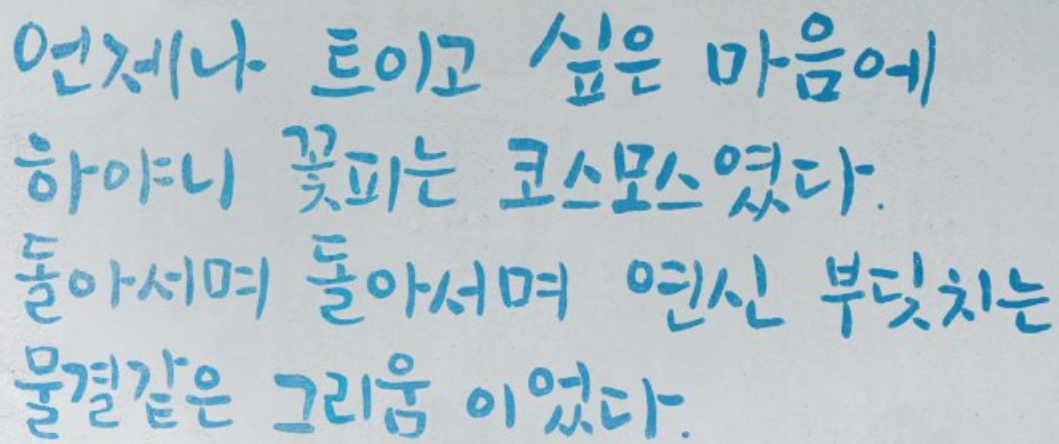 언제나 트이고 싶은 마음에
하야니 꽃피는 코스모스였다.
돌아서며 돌아서며 연신 부딪치는
물결같은 그리움 이었다.